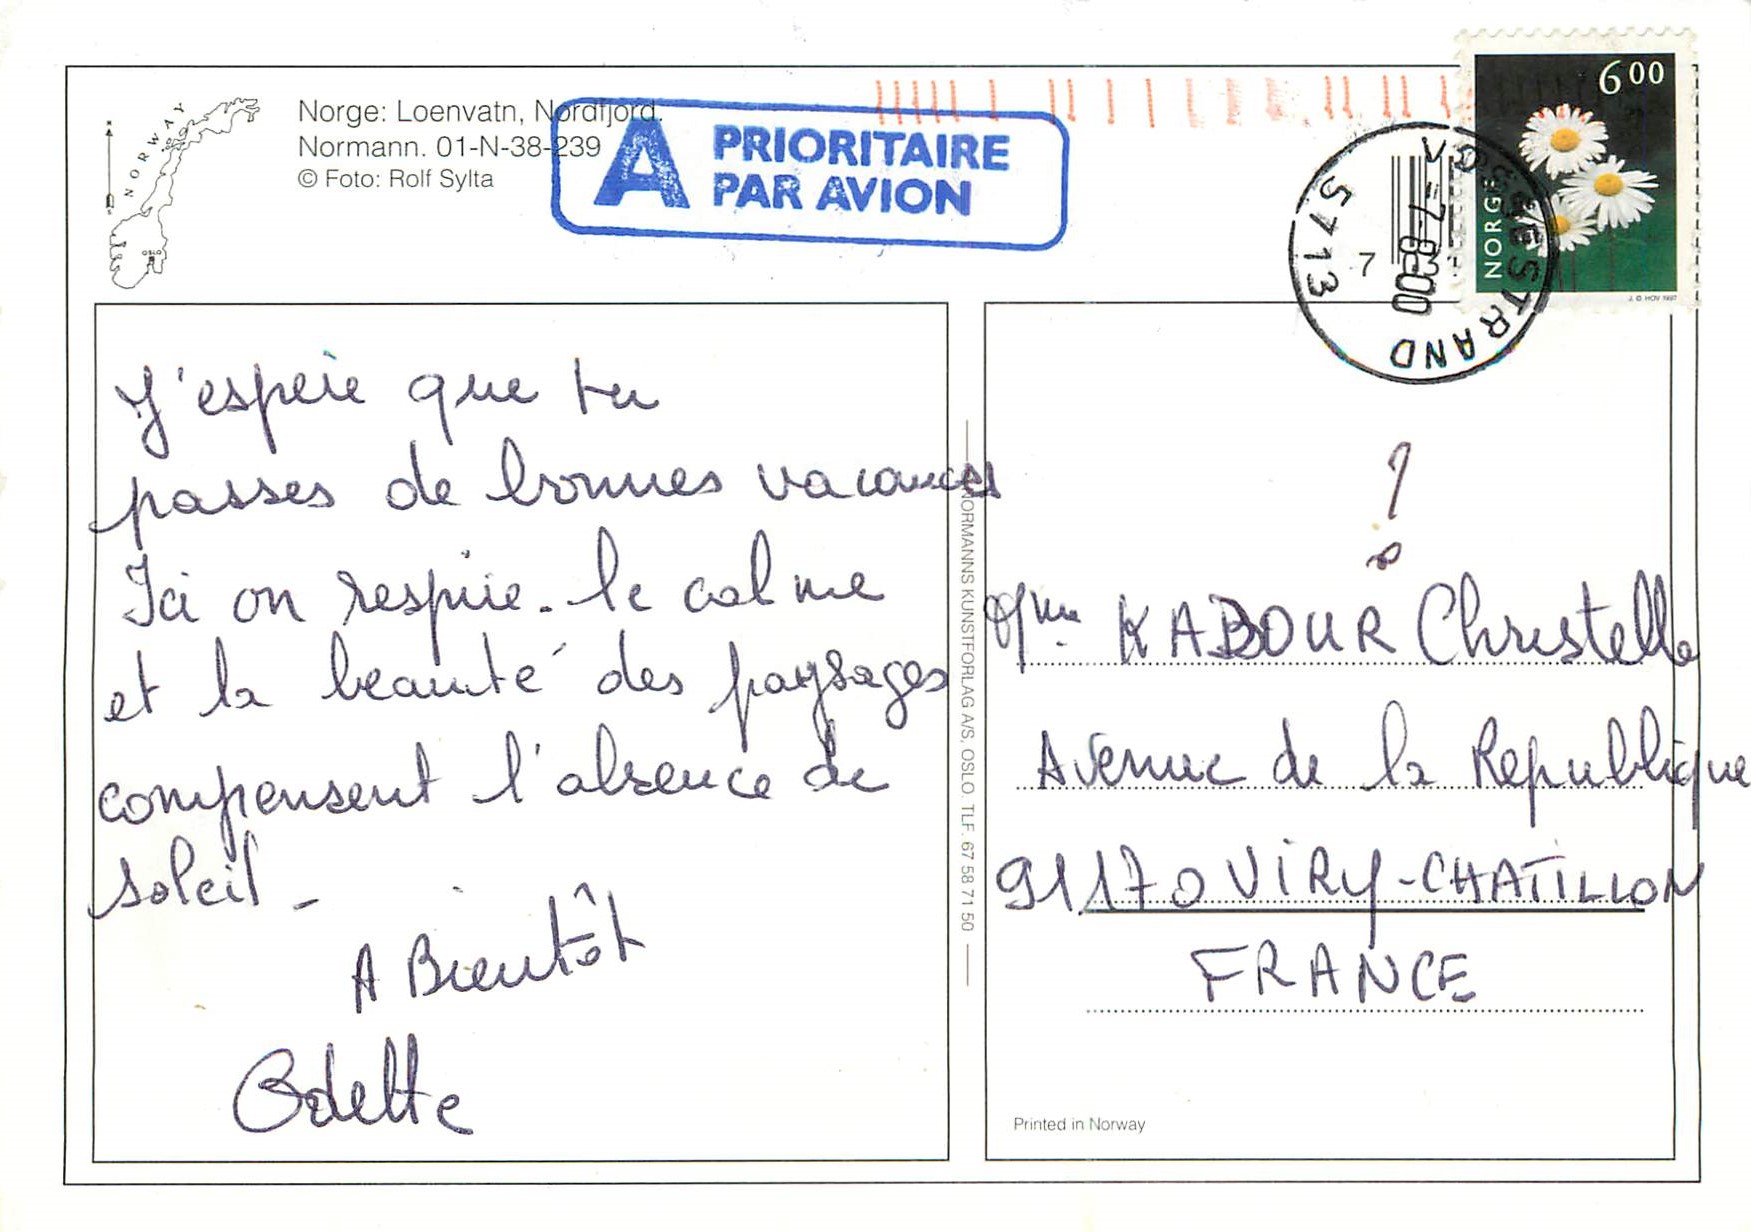 NORWAY
OSLO
Norge: Loenvatn, Nordfjord.
Normann. 01-N-38-239
© Foto: Rolf Sylta
A PRIORITAIRE
PAR AVION
600
NORGE
J. O. HOV 1997
5713 VOSSESTRAND
7
-7-8-00
J'espère que tu
passes de bonnes vacances
Ici on respire. le calme
et la beauté des paysages
compensent l'absence de
soleil -
A Bientôt
Odette
NORMANNS KUNSTFORLAG A/S, OSLO. TLF. 67 58 71 50
?
Mme KABOUR Christelle
Avenue de la Republique
91170 VIRY-CHATILLON
FRANCE
Printed in Norway